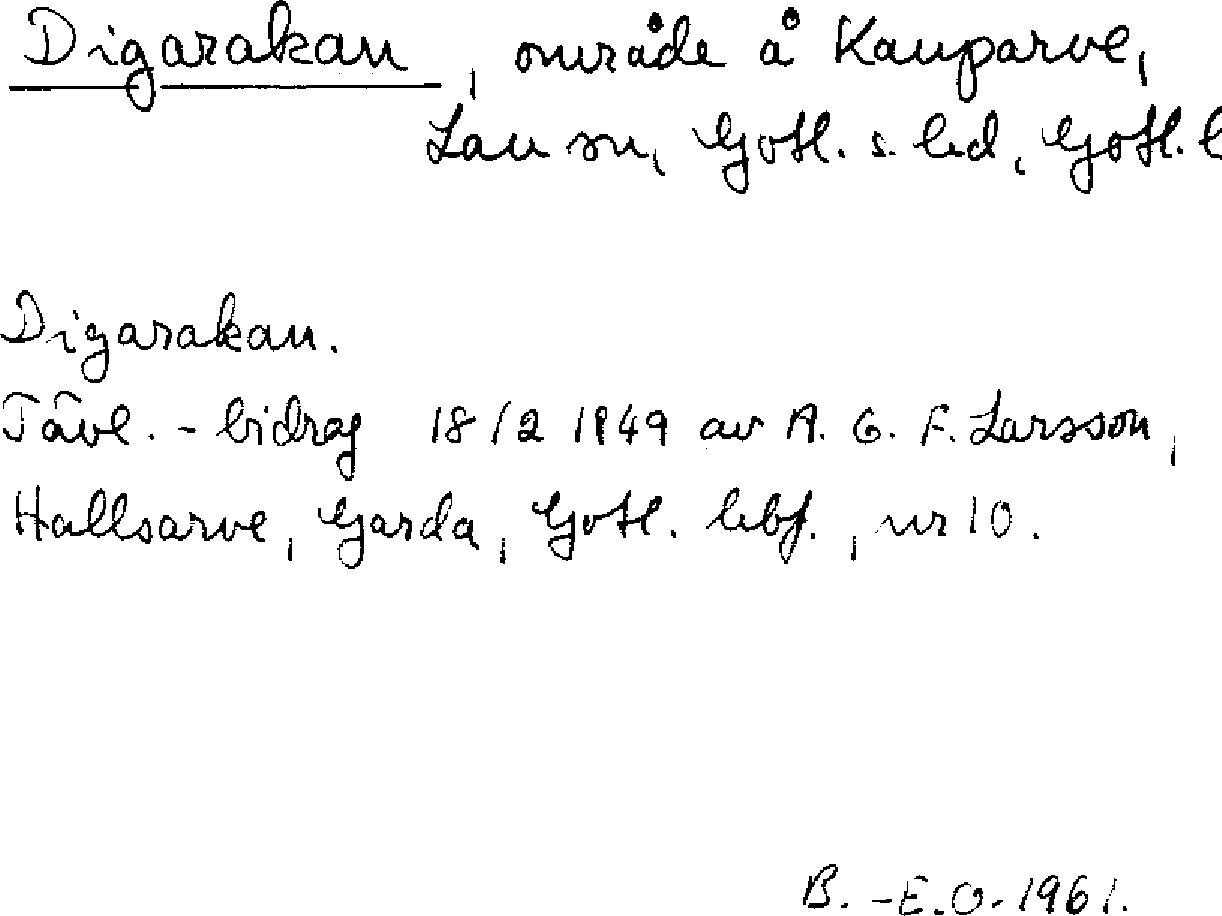 Digarakan, område å Kauparve,
Lau sn, Gotl. s. hd, Gotl. l
Digarakan.
Tävl.-bidrag 18/2 1949 av A. G. F. Larsson,
Hallsarve, Garda, Gotl. hbf., nr 10.
B.-E.O. 1961.